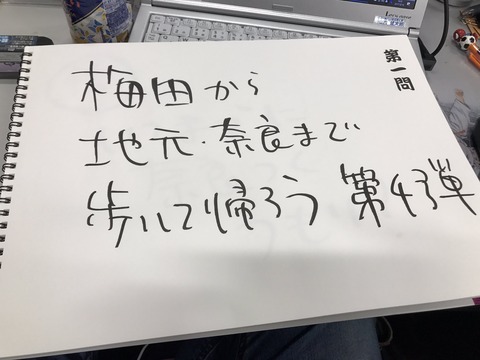 第一問
梅田から
地元・奈良まで
歩いて帰ろう 第43弾